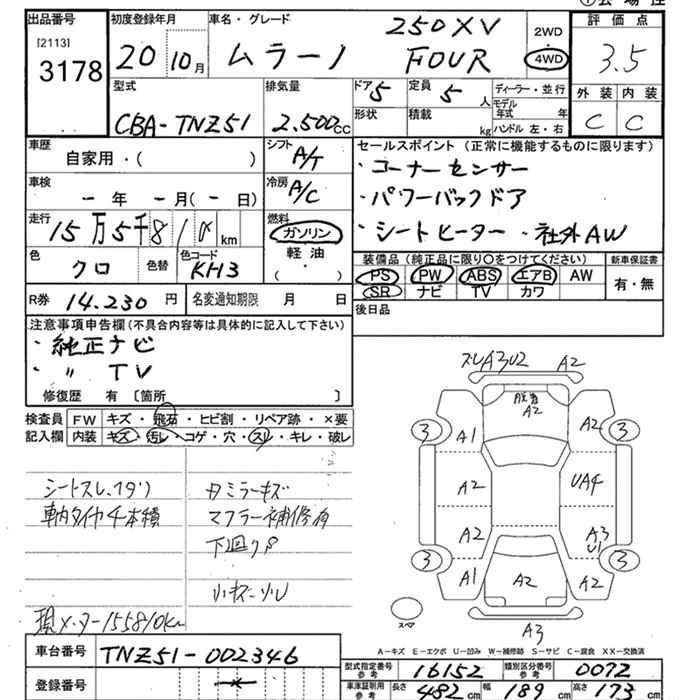 出品番号 初度登録年月 車名・グレード ①会場性
[2113] 3178 20 10月 ムラーノ 250XV FOUR 2WD 4WD 評価点 3.5
型式 排気量 ドア 5 定員 5人 ディーラー・並行 外装 内装
CBA-TNZ51 2,500cc 形状 積載 kg モデル年式 年 ハンドル 左・右 C C
車歴 自家用・( ) シフト A/T セールスポイント(正常に機能するものに限ります)
車検 ー年ー月(ー日) 冷房 A/C ・コーナーセンサー
・パワーバックドア
走行 15万5千810km 燃料 ガソリン ・シートヒーター ・社外AW
軽油
・( )
色 クロ 色替 色コード KH3 装備品(純正品に限り○をつけてください) 新車保証書
PS PW ABS エアB AW 有・無
SR ナビ TV カワ
R券 14.230円 名変通知期限 月 日 後日品
注意事項申告欄(不具合内容等は具体的に記入して下さい)
・純正ナビ
・〃 TV
修復歴 有〔箇所 〕
検査員 FW キズ・飛石・ヒビ割・リペア跡・×要
記入欄 内装 キズ・汚レ・コゲ・穴・スレ・キレ・破レ
シートスレ、スワリ 左ミラーキズ
車内タイヤ4本積 マフラー補修有
下廻りP
小キズ・ソレ
現メーター155810km
A3U2 A2
脱着 A2
3 A1 A2 3
A2 UA4
A2 A3 U1
3 A1 A2 A2 3
スペア A3
A-キズ E-エクボ U-凹み W-補修跡 S-サビ C-腐食 XX-交換済
車台番号 TNZ51-002346
登録番号
型式指定番号 参考 16152 類別区分番号 参考 0072
車庫証明用 参考 長さ 482 cm 幅 189 cm 高さ 173 cm